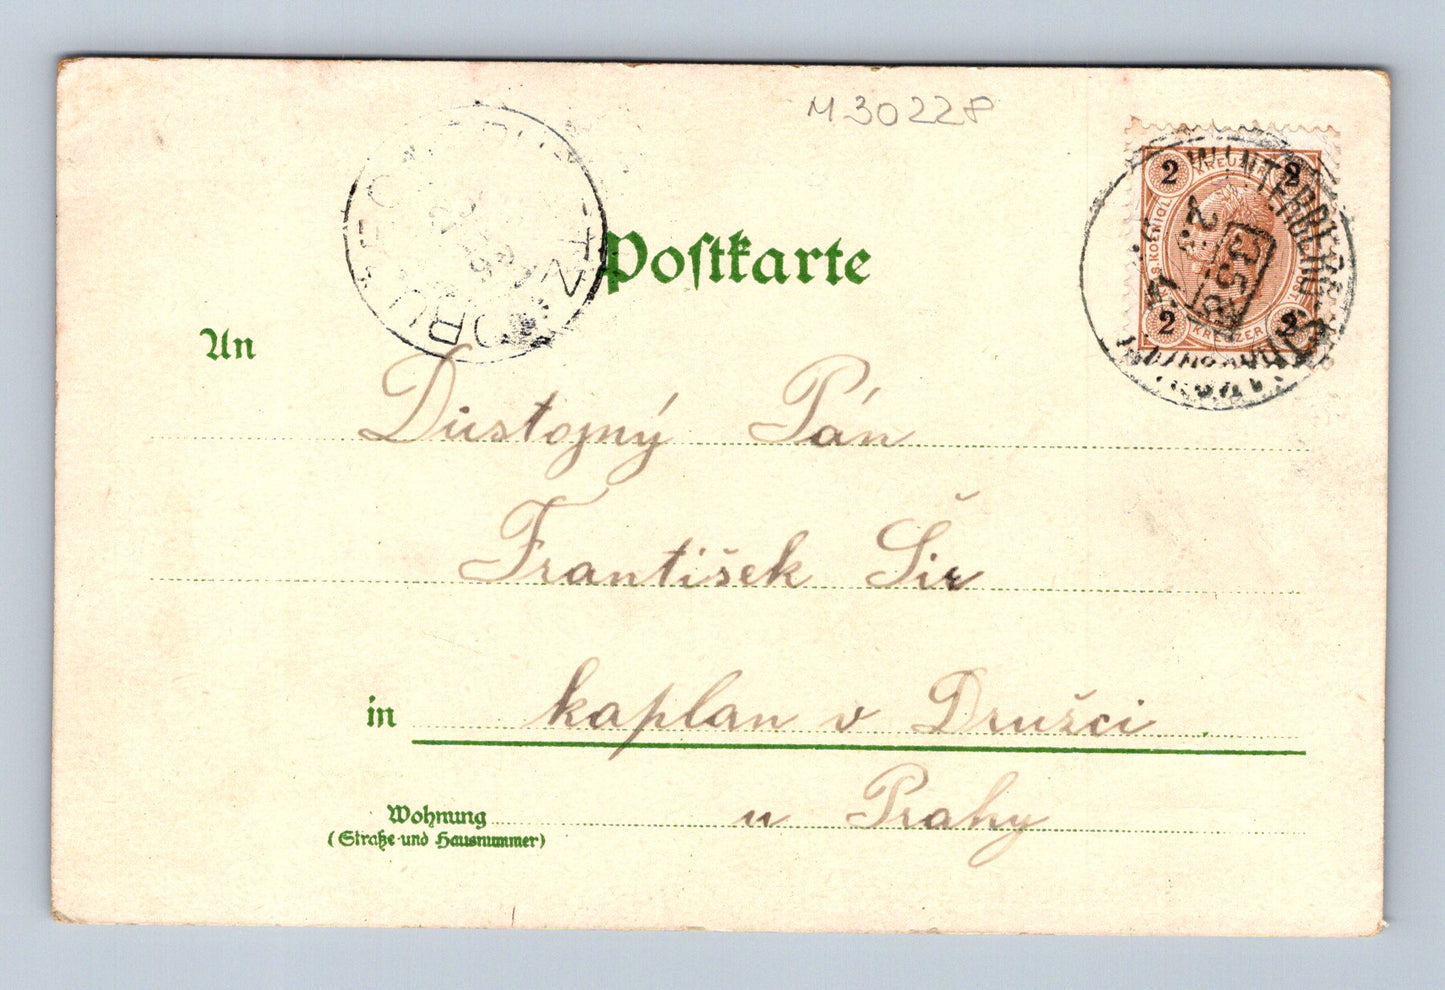 M 30228
2 KREUZER 2
WINTERBERG
2 KREUZER 2
Postkarte
An
Důstojný Pán
František Šír
in kaplan v Družci
Wohnung u Prahy
(Straße und Hausnummer)